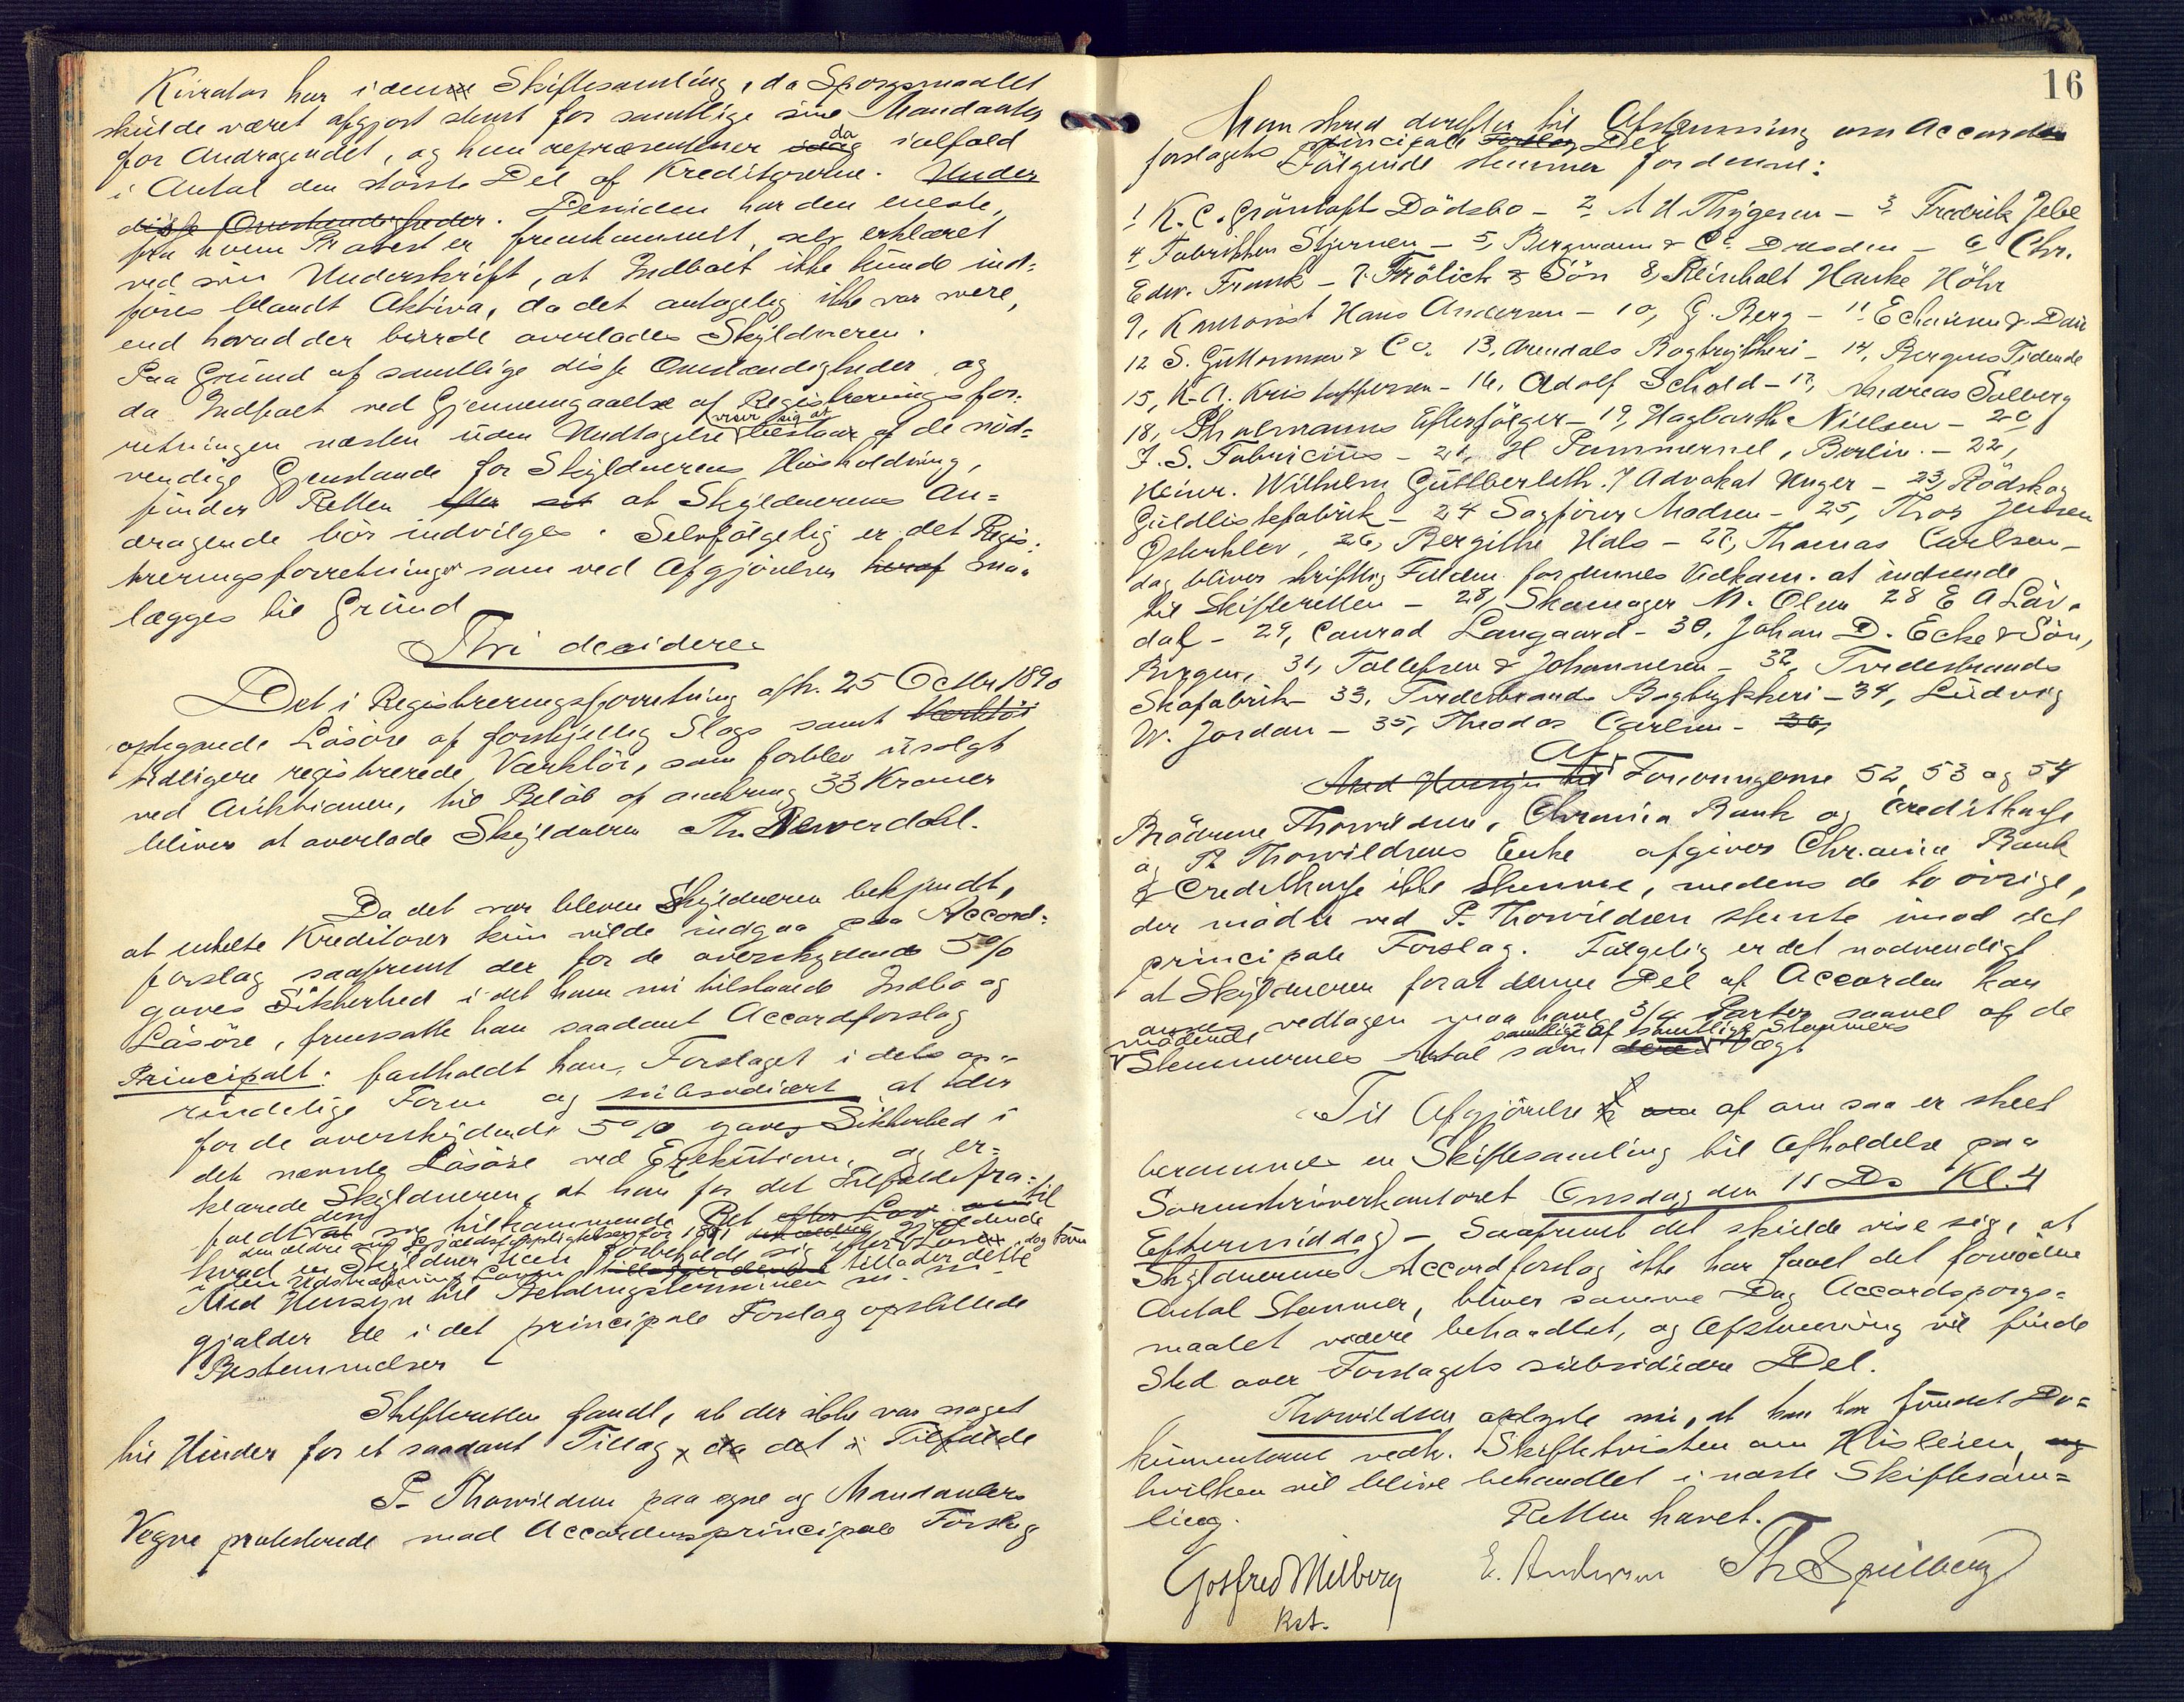 Kurator har i denne Skiftesamling, da Spørgsmaalet
skulde været afgjort stemt for samtlige sine Mandanter
for Andragendet, og han repræsenterer da ialfald
i Antal den største Del af Kreditorerne. Under
disse Omstændigheder. Desuden har den eneste,
fra hvem Protest er fremkommet, selv erklæret
ved sin Underskrift, at Indboet ikke kunde ind-
føres blandt Aktiva, da det antagelig ikke var mere,
end hvad der burde overlades Skyldneren.
Paa Grund af samtlige disse Omstændigheder og
da Indboet ved Gjennemgaaelse af Registreringsfor-
retningen næsten uden Undtagelse viser sig at bestaar af de nød-
vendige Gjenstande for Skyldnerens Husholdning,
finder Retten efter at Skyldnerens An-
dragende bør indvilges. Selvfølgelig er det Regis-
treringsforretninger som ved Afgjørelsen heraf maa
lægges til Grund
Thi decideres
Det i Registreringsforretning afh. 25 Octbr. 1890
optegnede Løsøre af forskjellig Slags samt Verktøi
tidligere registrerede Værktøi, som forblev usolgt
ved Auktionen, til Beløb af omkring 33 Kroner
bliver at overlade Skyldneren Th. Neverdahl.
Da det var bleven Skyldneren bekjendt,
at enkelte Kreditorer kun vilde indgaa paa Accord-
forslag saafremt der for de overskydende 5%
gaves Sikkerhed i det ham nu tilstaaede Indbo og
Løsøre, fremsatte han saadant Accordforslag
Principalt: fastholdt han Forslaget i dets op-
rindelige Form og subsidiært at der
for de overskydende 5% gaves Sikkerhed i
det nævnte Løsøre ved Exekution, og er-
klærede Skyldneren, at han for det Tilfælde fra-
faldt den ham tilkommende Ret til
hvad en Skyldner kan forbeholde sig tillader dette
Med Hensyn til Betalingsterminen m. m.
gjælder de i det principale Forslag opstillede
Bestemmelser
Skifteretten fandt, at der ikke var noget
til Hinder for et saadant Tillæg, da det i Tilfælde
P. Thorvildsen paa egne og Mandanters
Vegne protesterede mod Accordens principale Forslag
16
Man skred derefter til Afstemning om Accords
forslagets principale Forslag Del
Følgende stemmer for denne:
1 K. C. Grøntoft Dødsbo – 2, A H Thygesen – 3, Fredrik Jebe
4 Fabrikken Stjernen – 5, Bergmann & Co. Dresden – 6, Chr.
Edw. Frank – 7. Frölich & Søn 8, Reinholt Hanke Höhr
9, Kantorist Hans Andersen – 10, G. Berg – 11.
12 S. Guttormsen & Co. 13, Arendals Bogtrykkeri – 14, Bergens Tidende
15, K. A. Kristoffersen – 16, Adolf Schold – 17, Andreas Solberg
18, Thalmanns Efterfølger – 19, Hagbarth Nielsen – 20
J. S. Fabricius – 21, H Pammernel, Berlin. – 22,
Heinr. Wilhelm Guttberleth. f Advokat Unger – 23, Rødskog
Guldlistefabrik – 24 Sagfører Madsen – 25, Thor Jensen
Osterklev, 26, Bergithe Hals – 27, Thomas Carlsen –
dog bliver skriftlig Fuldm. for dennes Vedkom. at indsende
til Skifteretten – 28, Skomager M. Olsen 28 E A Løv-
dal – 29, Conrad Langaard – 30, Johan D. Ecke & Søn,
Bergen, 31, Tallefsen & Johannesen – 32, Tvedestrands
Skofabrik – 33, Tvedestrands Bogtrykkeri – 34, Ludvig
W. Jordan – 35, Theodor Carlsen – 36,
Af
Med Hensyn til Fordringerne 52, 53 og 54
Brødrene Thorvildsen, Chr.ania Bank og Creditkasse
og P. Thorvildsens Enke afgiver Chr.ania Bank
& Creditkasse ikke Stemme, medens de to øvrige,
der mødte ved P. Thorvildsen stemte imod det
principale Forslag. Følgelig er det nødvendigt
at Skyldneren forat denne Del af Accorden kan
ansees vedtagen maa have 3/4 Parter saavel af de
mødende
Stemmernes Antal som samtlige Stemmers Vægt
Til Afgjørelse af om saa er skeet
berammes en Skiftesamling til Afholdelse paa
Sorenskriverkontoret Onsdag den 15 Ds Kl. 4
Eftermiddag – Saafremt det skulde vise sig, at
Skyldnerens Accordforslag ikke har faaet det fornødne
Antal Stemmer, bliver samme Dag Accordspørgs-
maalet videre behandlet, og Afstemning vil finde
Sted over Forslagets subsidiære Del.
Thorvildsen oplyste nu, at han har fundet Do-
kumenterne vedk. Skiftetvisten om Husleien, og
hvilken vil blive behandlet i næste Skiftesam-
ling.
Retten hævet.
Gotfred Milberg E. Andersen Th Spillberg
Kst.